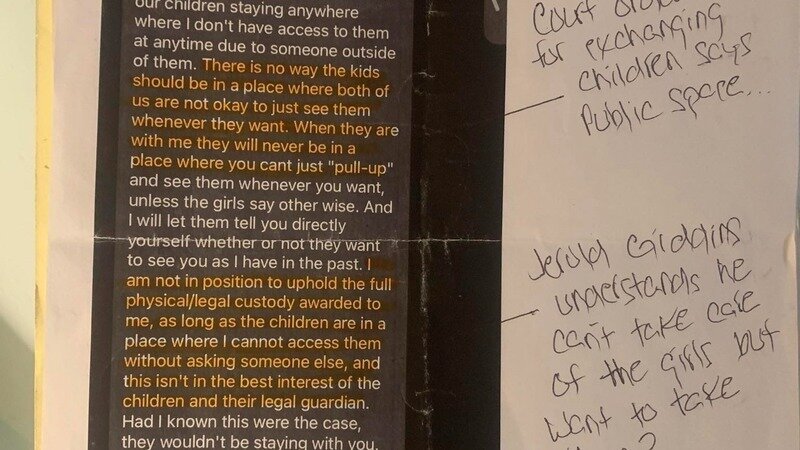 our children staying anywhere
where I don't have access to them
at anytime due to someone outside
of them. There is no way the kids
should be in a place where both of
us are not okay to just see them
whenever they want. When they are
with me they will never be in a
place where you cant just "pull-up"
and see them whenever you want,
unless the girls say other wise. And
I will let them tell you directly
yourself whether or not they want
to see you as I have in the past. I
am not in position to uphold the full
physical/legal custody awarded to
me, as long as the children are in a
place where I cannot access them
without asking someone else, and
this isn't in the best interest of the
children and their legal guardian.
Had I known this were the case,
they wouldn't be staying with you.
Court
for exchanging
children says
Public space...
Jerold Giddins
understands he
can't take care
of the girls but
want to take